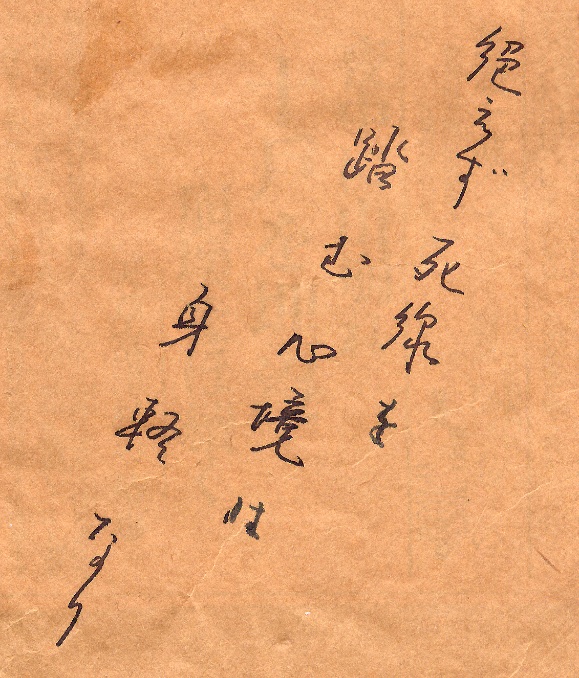 絶えず死線を
踏む心境は
身軽なり